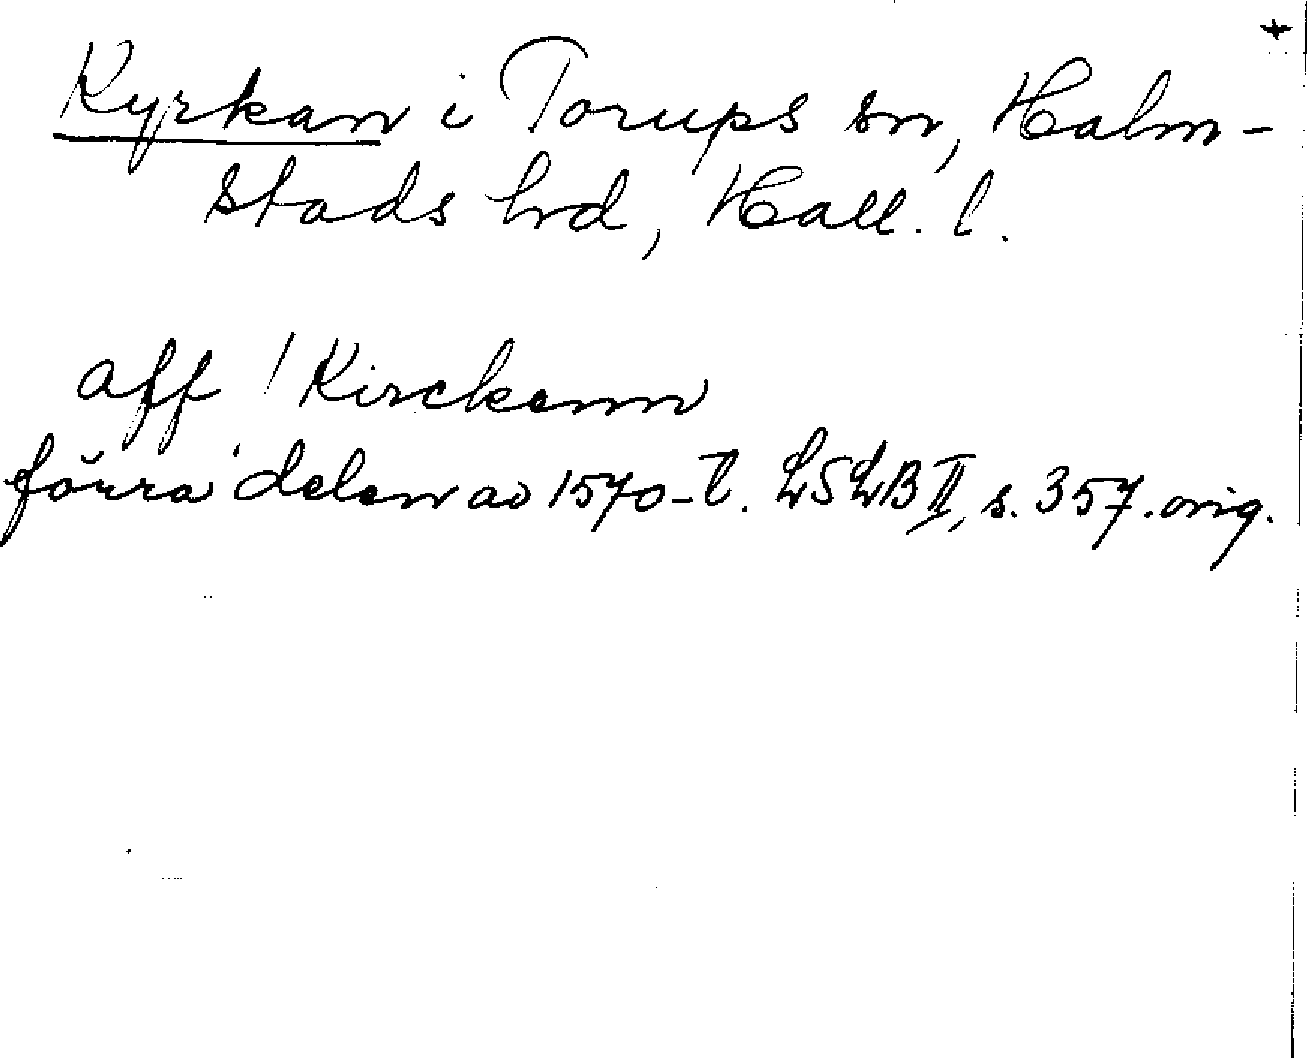 +
Kyrkan i Torups sn, Halm-
stads hrd, Hall. l.
aff / Kirckenn
förra delen av 1570-t. LSLB II, s. 357. orig.